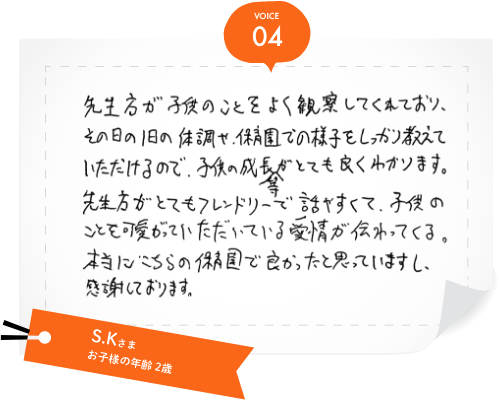 VOICE
04
先生方が子供のことをよく観察してくれており、
その日の1日の体調や、保育園での様子をしっかり教えて
いただけるので、子供の成長等がとても良くわかります。
先生方がとてもフレンドリーで話やすくて、子供の
ことを可愛がっていただいている愛情が伝わってくる。
本当にこちらの保育園で良かったと思っていますし、
感謝しております。
S.Kさま
お子様の年齢 2歳